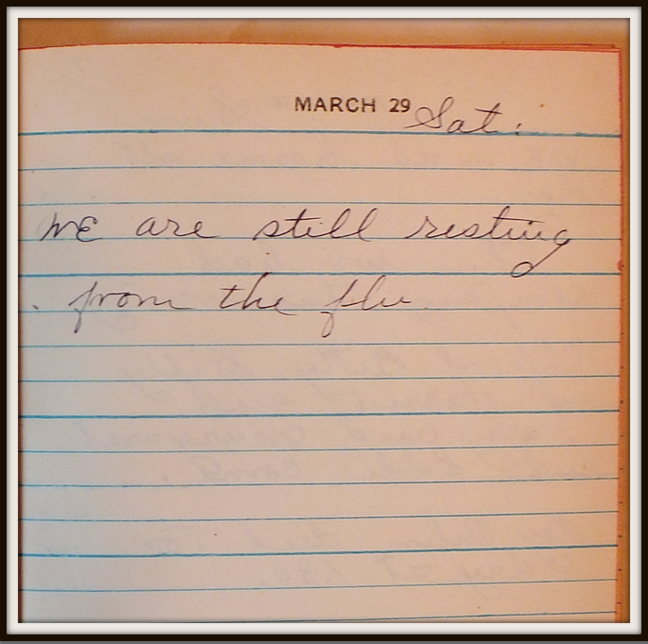 MARCH 29 Sat.
WE are still resting
from the flu.